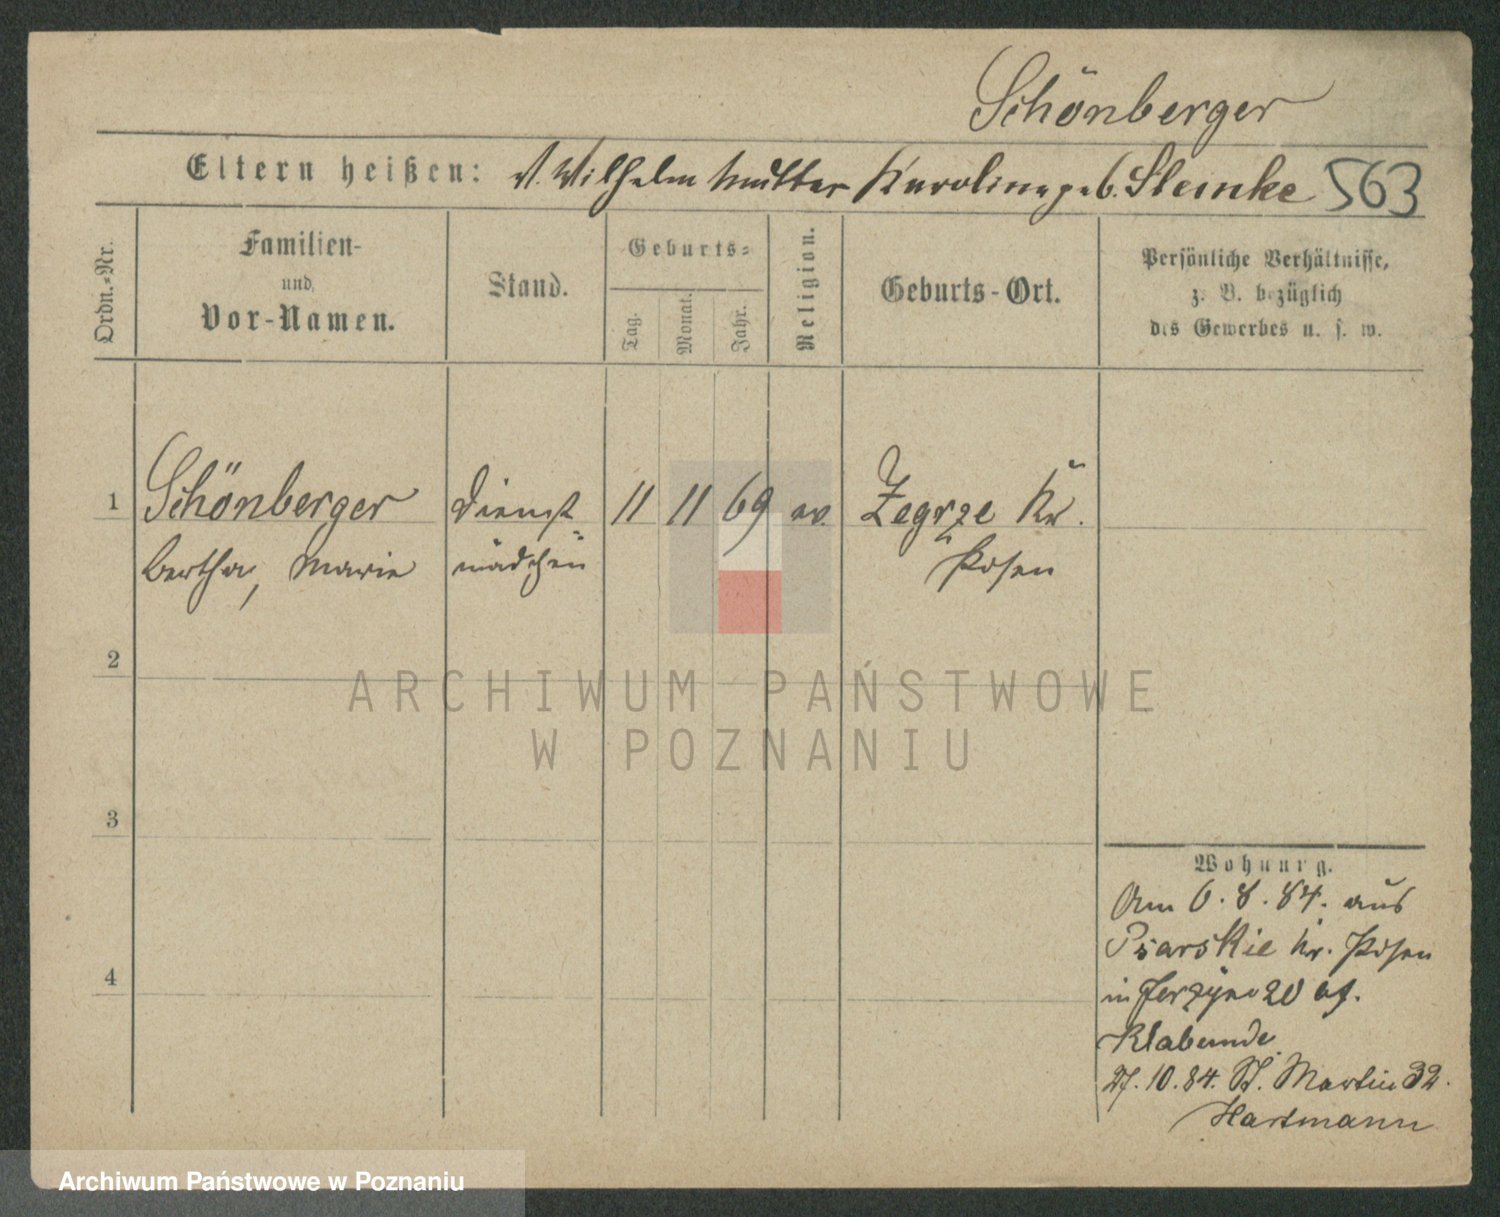 Schönberger
Eltern heißen: V. Wilhelm Mutter Karoline geb. Steinke 563
Ordn.=Nr.
Familien-
und
Vor-Namen.
Stand.
Geburts=
Tag.
Monat.
Jahr.
Religion.
Geburts-Ort.
Persönliche Verhältnisse,
z. B. bezüglich
des Gewerbes u. s. w.
1 Schönberger Dienst 11 11 69 ev. Zegrze Kr.
Bertha, Marie mädchen Posen
2
3
4
Wohnung.
Am 6.8.84. aus
Psarskie Kr. Posen
in Jerzyce 20 bf.
Klabunde
27.10.84. St. Martin 32.
Hartmann
ARCHIWUM PAŃSTWOWE
W POZNANIU
Archiwum Państwowe w Poznaniu